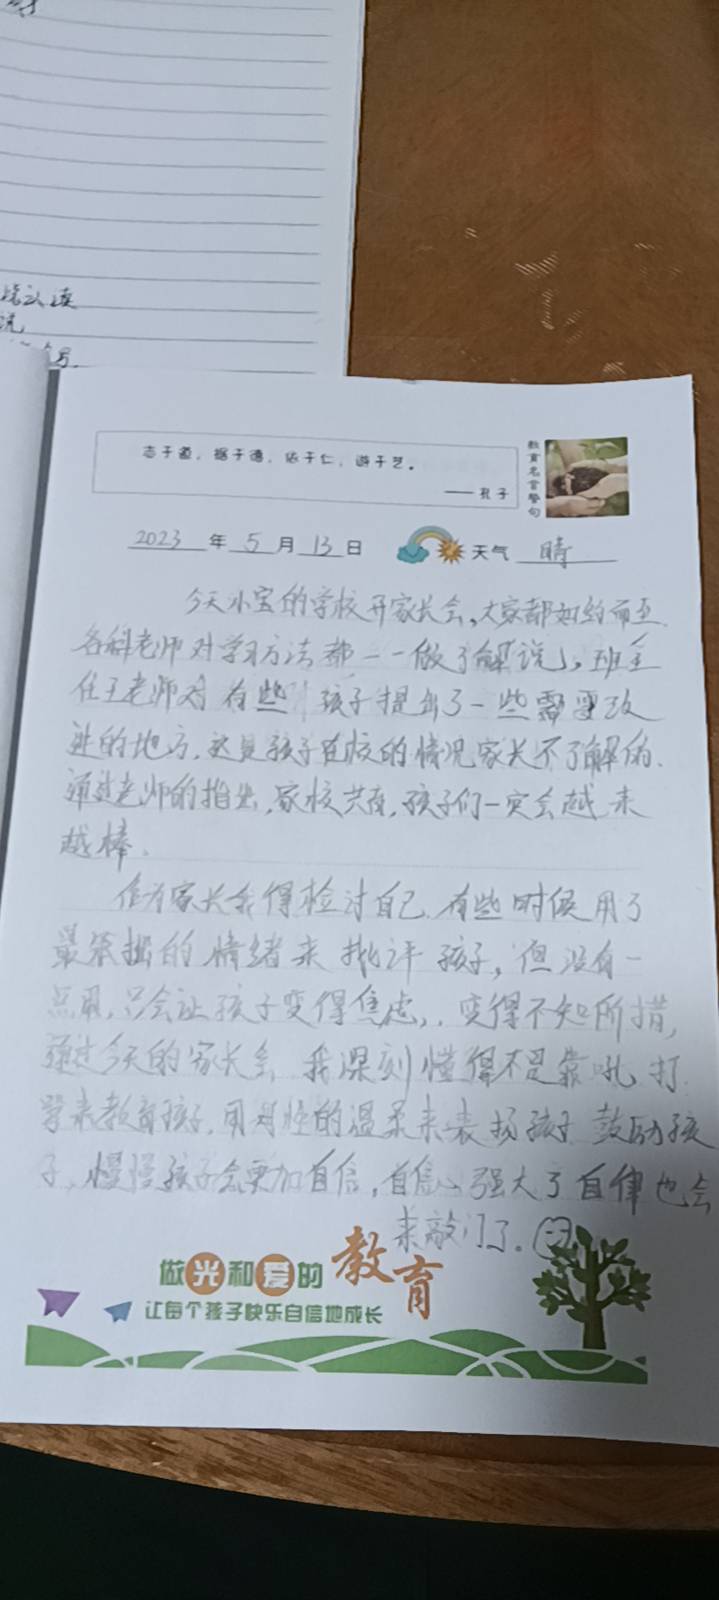 志于道，据于德，依于仁，游于艺。
——孔子
教育名言警句
2023年5月13日 天气 晴
今天小宝的学校开家长会，大家都如约而至.
各科老师对学习方法都一一做了解说，班主
任王老师对有些孩子提出了一些需要改
进的地方，这是孩子在校的情况家长不了解的.
通过老师的指出，家校共育，孩子们一定会越来
越棒.
作为家长我得检讨自己.有些时候用了
最笨拙的情绪来批评孩子，但没有一
点用，只会让孩子变得焦虑，变得不知所措，
通过今天的家长会 我深刻懂得不是靠吼、打.
来教育孩子，用母性的温柔来表扬孩子 鼓励孩
子，慢慢孩子会更加自信，自信心强大了自律也会
来敲门了.
做光和爱的教育
让每个孩子快乐自信地成长